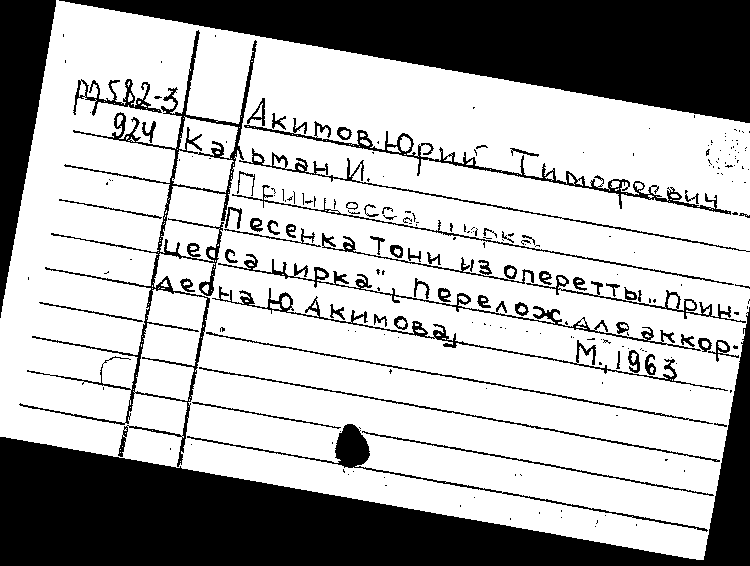 М 582-3
924
Акимов Юрий Тимофеевич
Кальман, И.
Принцесса цирка
Песенка Тони из оперетты „Прин-
цесса цирка". [Перелож. для аккор-
деона Ю. Акимова]
М., 1963